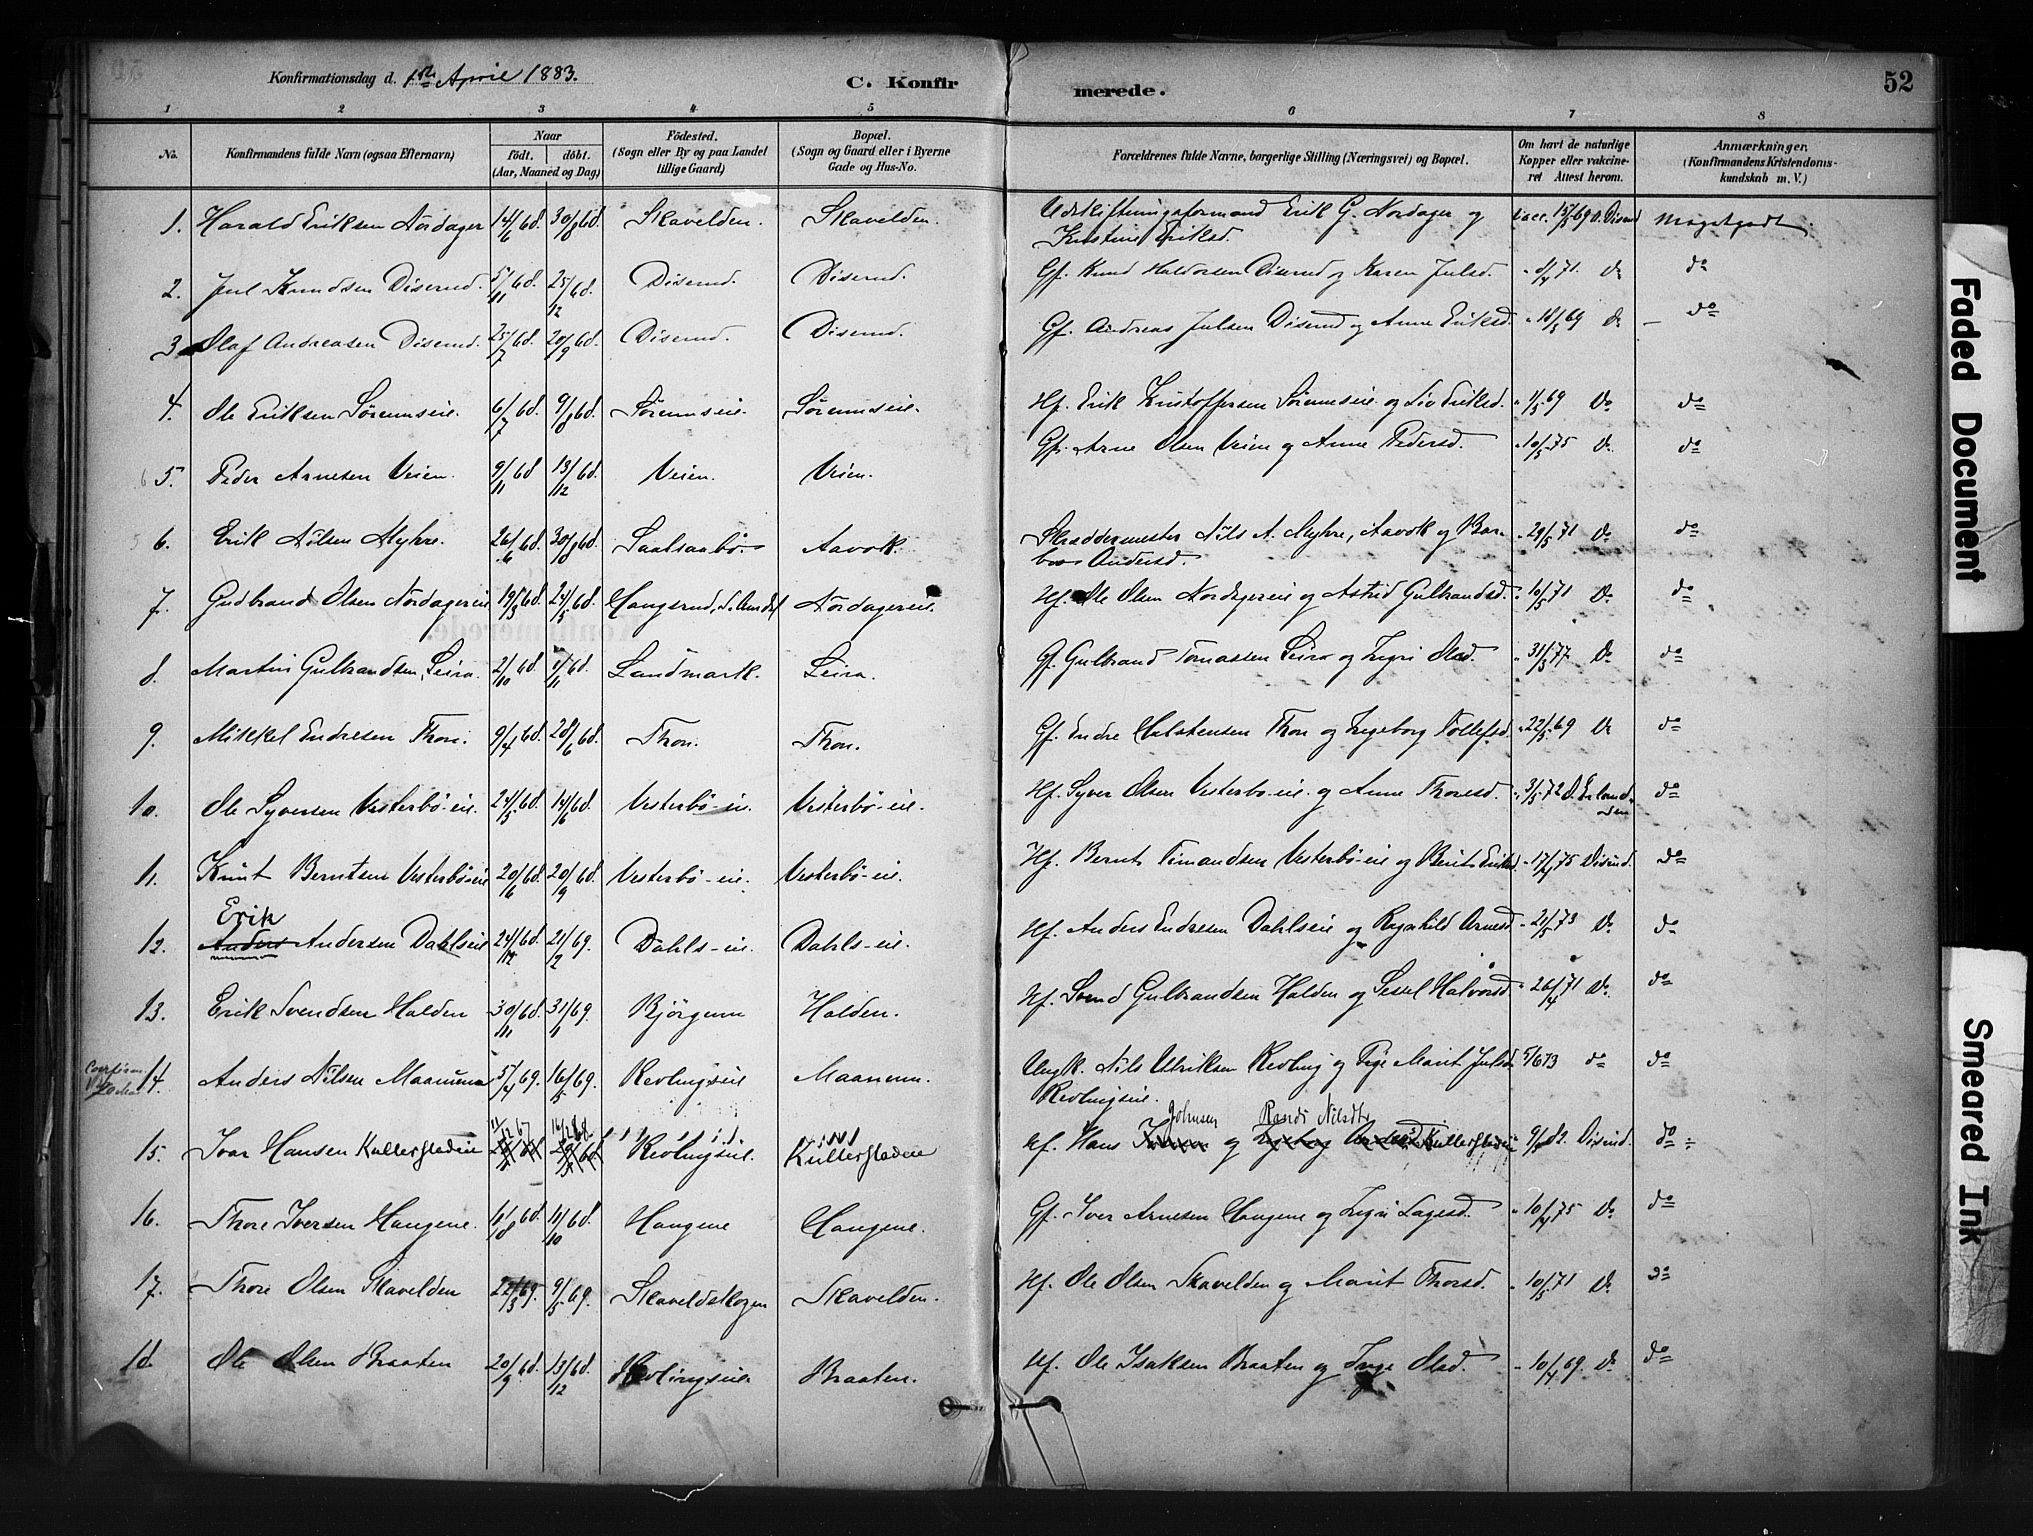 Konfirmationsdag d. 1ste April 1883.
C. Konfirmerede.
52
1 2 3 4 5 6 7 8
No. Konfirmandens fulde Navn (ogsaa Efternavn) Naar født. døbt. (Aar, Maaned og Dag) Födested. (Sogn eller By og paa Landet tillige Gaard) Bopæl. (Sogn og Gaard eller i Byerne Gade og Hus-No. Forældrenes fulde Navne, borgerlige Stilling (Næringsvei) og Bopæl. Om havt de naturlige Kopper eller vakcineret Attest herom. Anmærkninger. (Konfirmandens Kristendomskundskab m. V.)
1. Harald Eriksen Nordager 14/6 68. 30/8 68. Skavelden. Skavelden. Udskiftningsformand Erik G. Nordager og vacc. 15/5 69 D. Diserud Megetgodt
Kristine Eriksd.
2. Jul Knudsen Diserud. 5/11 68. 25/12 68. Diserud. Diserud. Gf. Knud Haldorsen Diserud og Karen Julsd. " 8/4 71. Do do
3. Olaf Andreasen Diserud. 25/7 68. 20/9 68. Diserud. Diserud. Gf. Andreas Julsen Diserud og Anne Eriksd. " 18/5 69 Do do
4. Ole Eriksen Sørumseie. 6/7 68. 9/8 68 Sørumseie. Sørumseie. Hf. Erik Kristoffersen Sørumseie og Liv Eriksd. " 1/5 69 Do do
5. Peder Arnesen Veien. 9/11 68 13/12 68. Veien. Veien. Gf. Arne Olsen Veien og Anne Pedersd. " 10/5 75 Do do
6. Erik Nilsen Myhre. 26/6 68. 30/8 68. Aavok. Skræddermester Nils A. Myhre, Aavok og Bar- " 29/5 71 Do do
bro Andersd.
7. Gudbrand Olsen Nordagereie 19/3 68. 24/5 68. Haugsrud, S. Aurdal Nordagereie. Hf. Ole Olsen Nordagereie og Astrid Gulbrandsd. " 10/5 71 Do do
8. Martin Gulbrandsen Leira. 2/10 68. 1/11 68. Landmark. Leira. Gf. Gulbrand Tomassen Leira og Ingri Olsd. " 31/5 77 Do do
9. Mikkel Endresen Thon. 9/4 68. 28/6 68. Thon. Thon. Gf. Endre Halstensen Thon og Ingeborg Tollefsd. " 22/5 69 Do do
10. Ole Syversen Vesterbö-eie. 24/5 68. 14/6 68. Vesterbö-eie. Vesterbö-eie. Hf. Syver Olsen Vesterbö-eie og Anne Thoresd. " 3/5 72 D. Erlandsen do
11. Knut Berntsen Vesterböeie 20/6 68. 20/9 68. Vesterbö-eie. Vesterbö-eie. Hf. Bernt Vesterbö-eie og Berit Eriksd. " 17/4 75 Diserud. do
Erik
12. Anders Andersen Dahlseie 24/12 68. 21/2 69. Dahls-eie. Dahls-eie. Hf. Anders Endresen Dahlseie og Ragnhild Arnesd. " 21/5 73 Do do
13. Erik Svendsen Halden 30/11 68. 31/1 69. Björgum Halden. Hf. Svend Gulbrandsen Halden og Sessel Halvorsd. " 26/4 71 Do do
14. Anders Nilsen Maanum 5/4 69. 16/5 69. Revlingseie Maanum. Ungk. Nils Ulriksen Revling og Pige Marit Julsd. 5/6 73 do do
Revlingseie.
Johnsen Randi Nilsdtr
15. Ivar Hansen Kullerstadeie 11/12 67 16/2 68 Revlingseie. Kullerstadeie Hf. Hans og Kullerstadeie 9/3 82. Diserud. do
16. Thore Iversen Haugene. 16/8 68. 11/10 68. Haugene Haugene. Gf. Iver Arnesen Haugene og Ingri Lagesd. " 10/4 75 Do do
17. Thore Olsen Skavelden 22/3 69. 9/5 69. Skaveldskogen Skavelden. Hf. Ole Olsen Skavelden og Marit Thorsd. " 10/5 71 Do do
18. Ole Olsen Braaten 20/9 68. 13/12 68. Revlingseie Braaten. Hf. Ole Isaksen Braaten og Inge Olsd. " 10/4 69. Do do
Faded Document
Smeared Ink